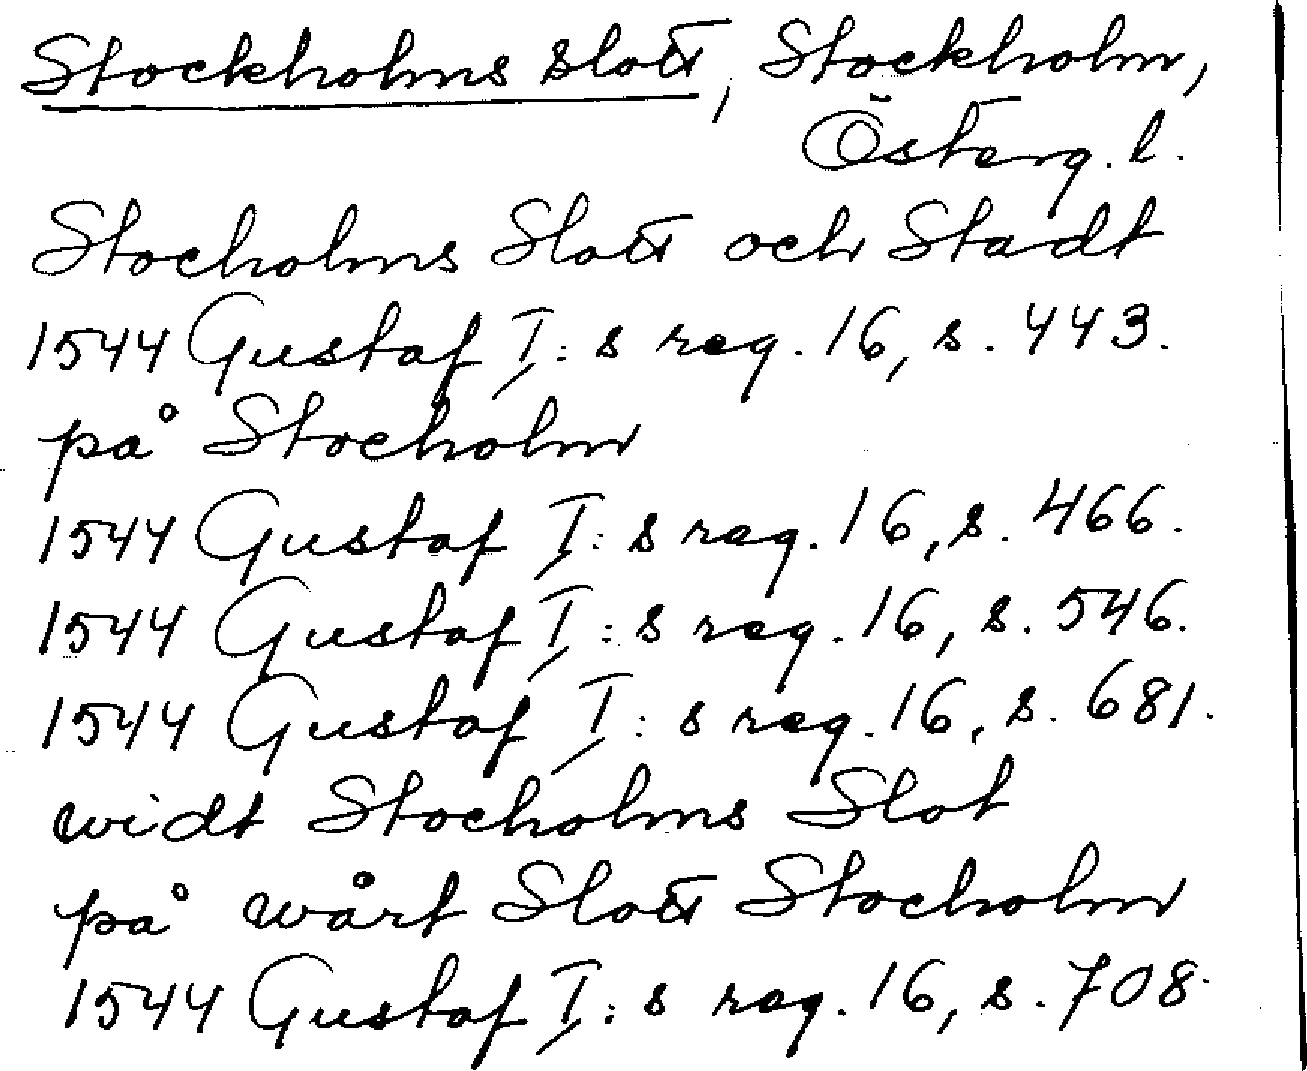 Stockholms slott, Stockholm,
Österg. l.
Stocholms Slott och Stadt
1544 Gustaf I:s reg. 16, s. 443.
på Stocholm
1544 Gustaf I:s reg. 16, s. 466.
1544 Gustaf I:s reg. 16, s. 546.
1544 Gustaf I:s reg. 16, s. 681.
widt Stocholms Slot
på wårt Slott Stocholm
1544 Gustaf I:s reg. 16, s. 708.